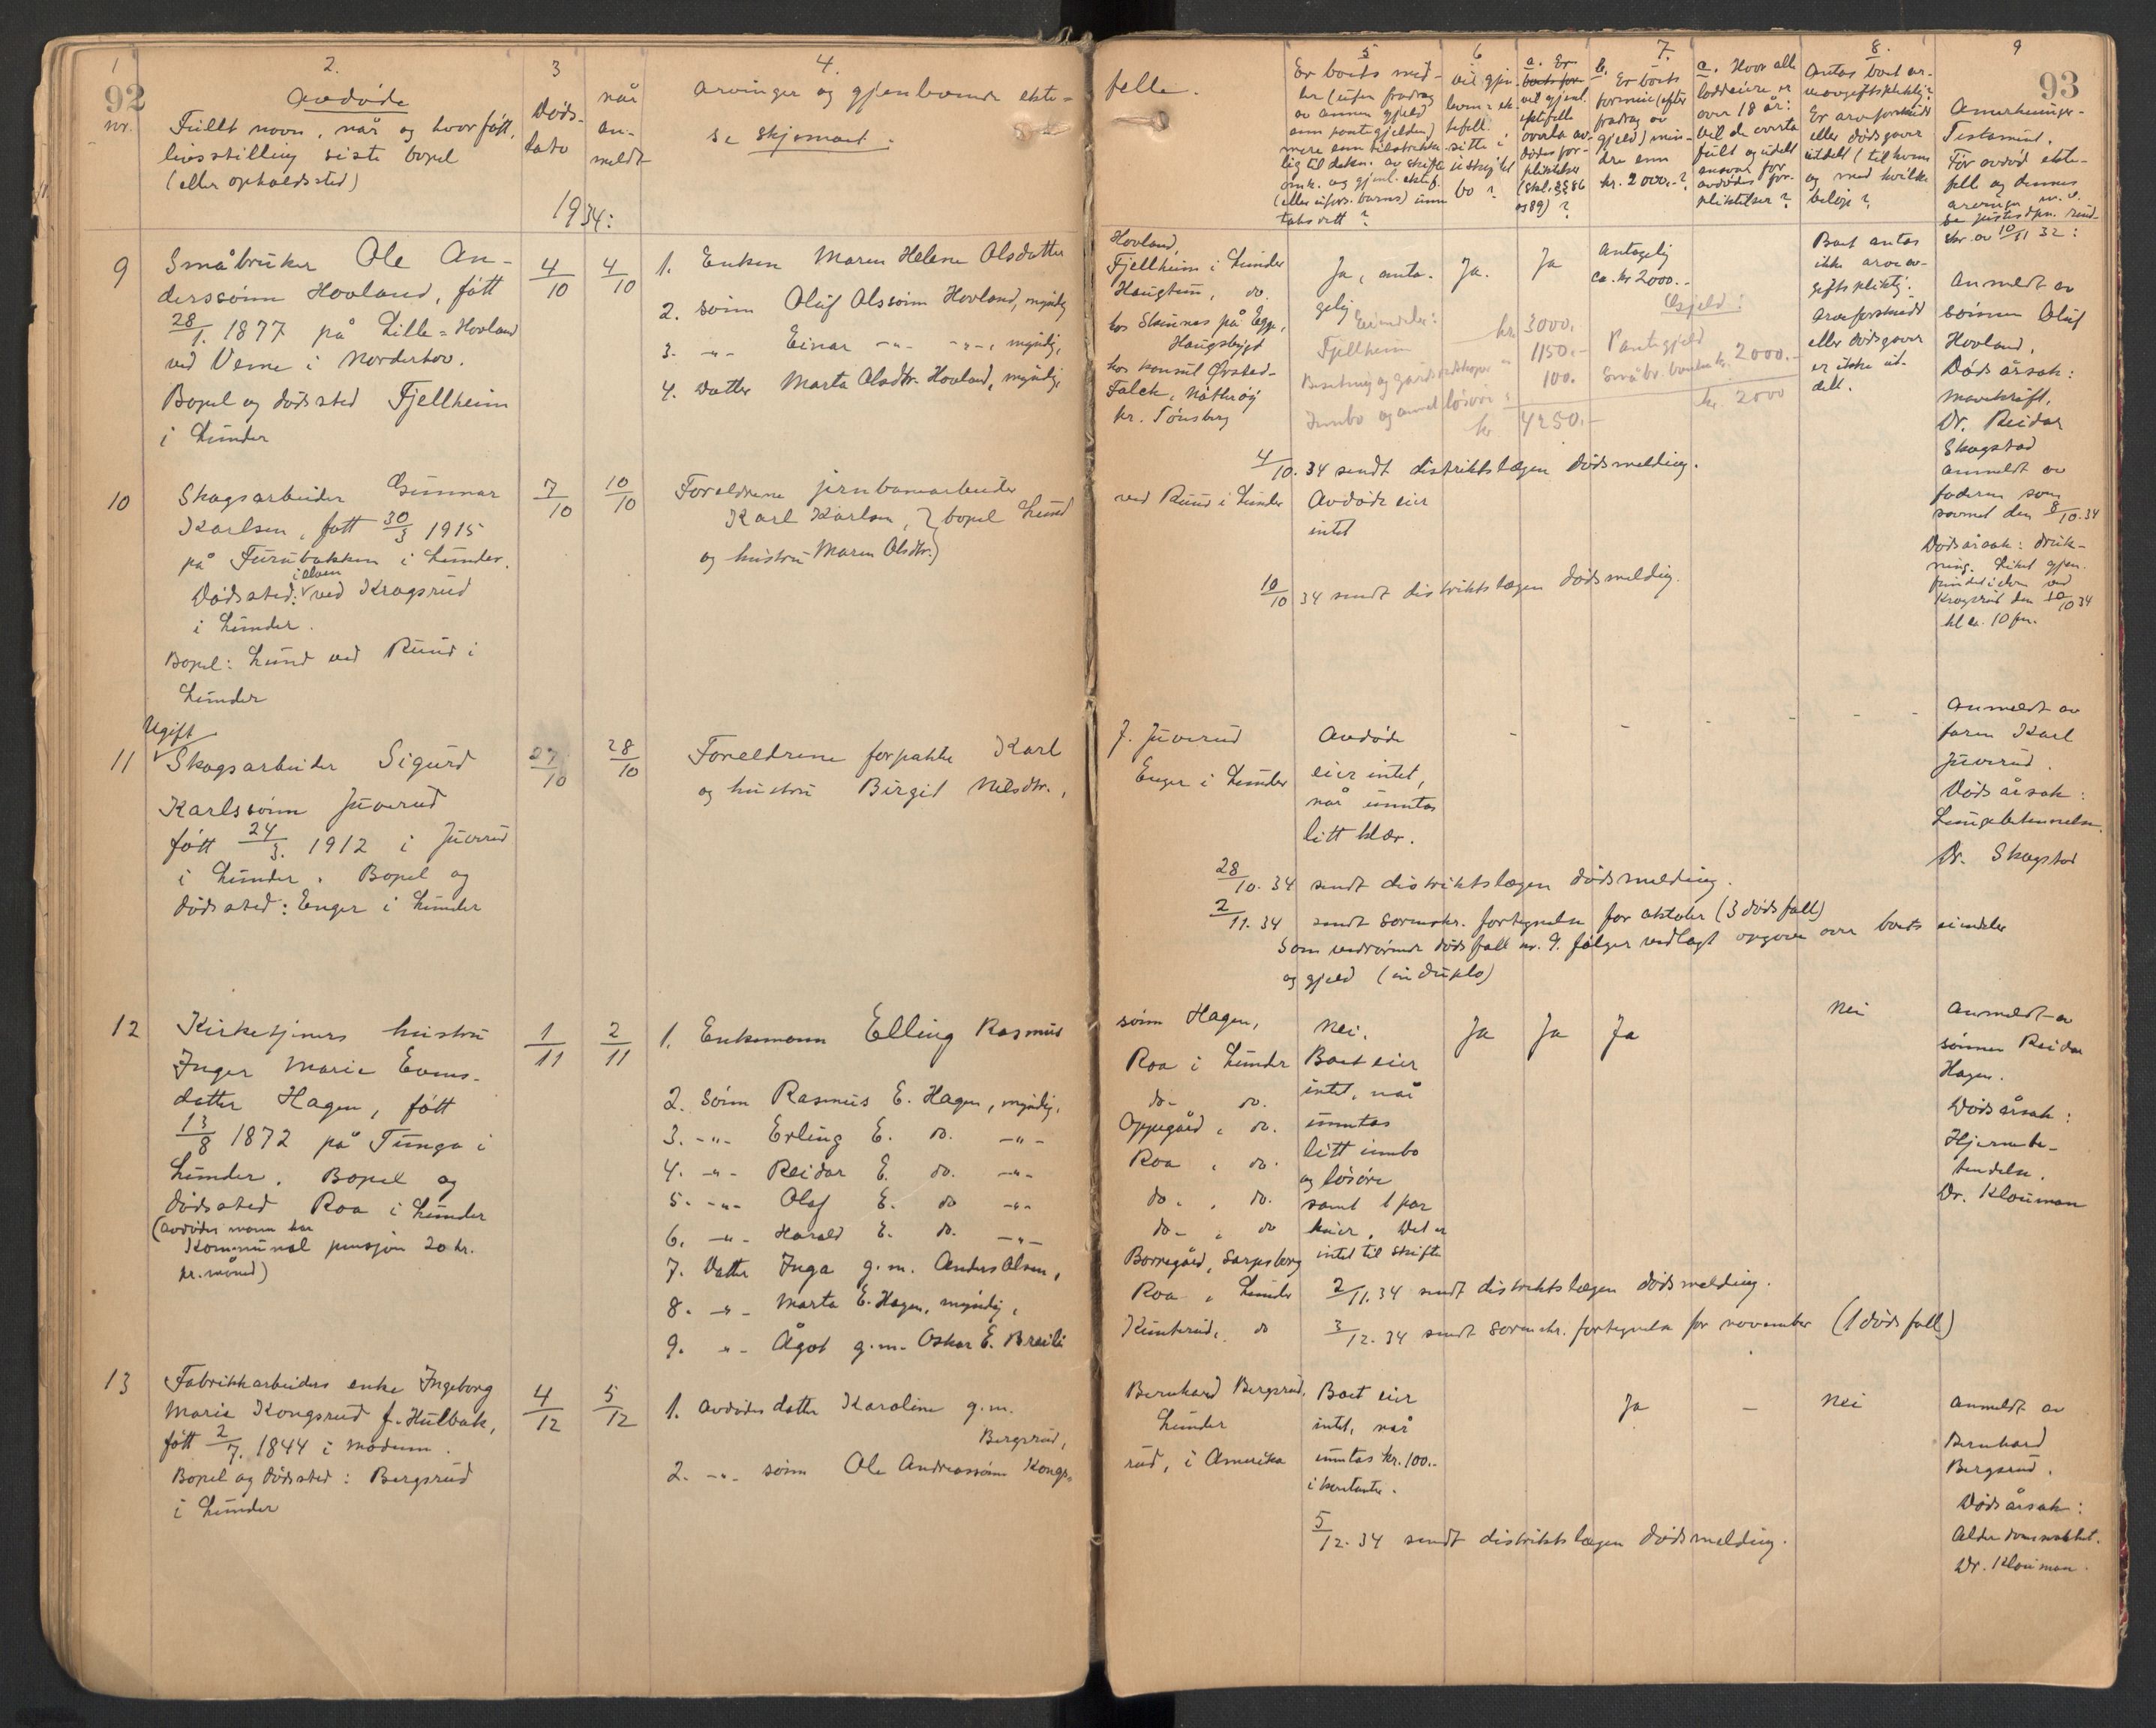 92
1
nr.
2.
Avdøde
Fullt navn, når og hvor født,
livsstilling siste bopel
(eller opholdssted)
3
Døds-
dato
når
an-
meldt
1934:
4.
Arvinger og gjenlevende ekte-
se skjemaet.
9
Småbruker Ole An-
derssønn Hovland, født
28/1. 1877 på Lille-Hovland
ved Veme i Norderhov.
Bopel og dødssted Fjellheim
i Lunder
4/10
4/10
1. Enken Maren Helene Olsdatter
2. sønn Oluf Olssønn Hovland, myndig
3. -"- Einar -"- -"-, myndig,
4. datter Marta Olsdtr. Hovland, myndig,
10
Skogsarbeider Gunnar
Karlsen, født 30/3 1915
på Furubakken i Lunder.
i elven
Dødssted: ved Kragsrud
i Lunder.
Bopel: Lund ved Ruud i
Lunder
7/10
10/10
Foreldrene jernbanearbeider
Karl Karlsen, } bopel Lund
og hustru Maren Olsdtr.
Ugift
11
Skogsarbeider Sigurd
Karlssønn Juverud
født 24/3. 1912 i Juverud
i Lunder. Bopel og
dødssted: Enger i Lunder
27/10
28/10
Foreldrene forpakter Karl
og hustru Birgit Nilsdtr.,
12
Kirketjeners hustru
Inger Marie Evens-
datter Hagen, født
13/8 1872 på Tunga i
Lunder. Bopel og
dødssted Roa i Lunder
(avdødes mann har
Kommunal pensjon 20 kr.
pr. måned)
1/11
2/11
1. Enkemann Elling Rasmus
2. Sønn Rasmus E. Hagen, myndig,
3. -"- Erling E. do. -"-
4. -"- Reidar E. do. -"-
5. -"- Olaf E. do -"-
6. -"- Harald E. do. -"-
7. Datter Inga g.m. Anders Olsen,
8. -"- Marta E. Hagen, myndig,
9. -"- Ågot g.m. Oskar E. Breili
13
Fabrikkarbeiders enke Ingeborg
Marie Kongsrud f. Hulbak,
født 2/7. 1844 i Modum.
Bopel og dødssted: Bergsrud
i Lunder
4/12
5/12
1. Avdødes datter Karoline g.m.
Bergsrud,
2. -"- sønn Ole Andreassønn Kongs-
93
felle.
5
Er boets mid-
ler (uten fradrag
av annen gjeld
enn pantegjelden)
mere enn tilstrekke-
lig til dekn. av skifte-
omk. og gjenl. ektef.
(eller ufors. barns) unn-
taksrett?
6
Vil gjen-
levende ek-
tefelle
sitte i
uskiftet
bo?
7.
a. Er
boets for-
vil gjenl.
ektefelle
overta av-
dødes for-
pliktelser
(skl. §§ 86
og 89)?
b. Er boets
formue (efter
fradrag av
gjeld) min-
dre enn
kr. 2000.-?
c. Hvor alle
loddeiere er
over 18 år:
Vil de overta
fullt og udelt
ansvar for
avdødes for-
pliktelser?
8.
Antas boet ar-
veavgiftspliktig?
Er arveforskudd
eller dødsgaver
utdelt (til hvem
og med hvilke
beløp?
9
Anmerkninger.
Testament.
Før avdød ekte-
felle og dennes
arvinger m.v.
Se justisdpn. rund-
skr. av 10/11 32:
Hovland,
Fjellheim i Lunder
Haugtun, do.
hos Skinnes på Egge,
Haugsbygd
hos konsul Ørsted-
Falck, Nøtterøy
pr. Tønsberg
Ja, anta-
gelig
Ja.
Ja
Antagelig
ca. kr 2000.-
Eiendeler:
Fjellheim kr. 3000.
Besetning og gårdsredskaper " 1150.-
Innbo og annet løsøre " 100.
kr 4250.-
Gjeld:
Pantegjeld
Småbr. banken kr. 2000.-
kr. 2000
Boet antas
ikke arveav-
giftspliktig.
Arveforskudd
eller dødsgaver
er ikke ut-
delt.
Anmeldt av
sønnen Oluf
Hovland.
Dødsårsak:
Mavekreft.
Dr. Reidar
Skagstad
4/10. 34 sendt distriktslægen dødsmelding.
ved Ruud i Lunder
Avdøde eier
intet
Anmeldt av
faderen som
savnet den 8/10.34
Dødsårsak: druk-
ning. Liket gjen-
funnet i elven ved
Kragsrud den 10/10 34
kl ca. 10 fm.
10/10 34 sendt distriktslægen dødsmelding.
J. Juverud
Enger i Lunder
Avdøde
eier intet,
når unntas
litt klær.
- - - - -
Anmeldt av
faren Karl
Juverud.
Dødsårsak:
Lungebetennelse.
Dr. Skagstad
28/10. 34 sendt distriktslægen dødsmelding.
2/11. 34 sendt sorenskr. fortegnelse for oktober (3 dødsfall)
Som vedrørende dødsfall nr. 9. følger vedlagt opgave over boets eiendeler
og gjeld (in duplo)
sønn Hagen,
Roa i Lunder
do- do.
Oppegård, do.
Roa, do.
do., do.
do-, do
Borregård, Sarpsborg
Roa, Lunder
Kinterud, do
Nei.
Boet eier
intet, når
unntas
litt innbo
og løsøre
samt 1 par
kuer. Det er
intet til skifte
Ja
Ja
Ja
Nei
Anmeldt av
sønnen Reidar
Hagen.
Dødsårsak:
Hjernebe-
tendelse.
Dr. Klouman
2/11. 34 sendt distriktslægen dødsmelding.
3/12. 34 sendt sorenskr. fortegnelse for november (1 dødsfall)
Bernhard Bergsrud,
Lunder
rud, i Amerika
Boet eier
intet, når
unntas kr. 100.-
i kontanter.
Ja
-
Nei
Anmeldt av
Bernhard
Bergsrud.
Dødsårsak:
Alderdomssvakhet.
Dr. Klouman.
5/12. 34 sendt distriktslægen dødsmelding.